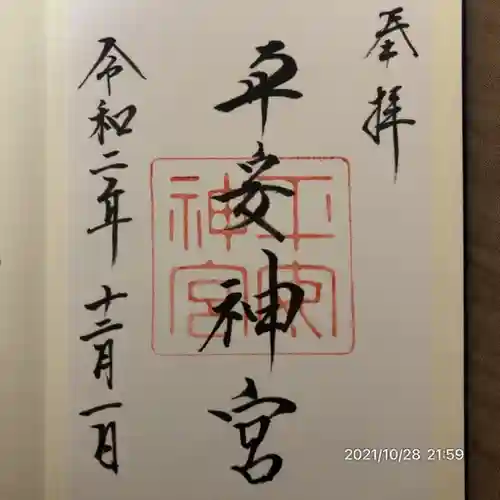 奉拝
平安神宮
平安神宮
令和二年 十二月一日
2021/10/28 21:59